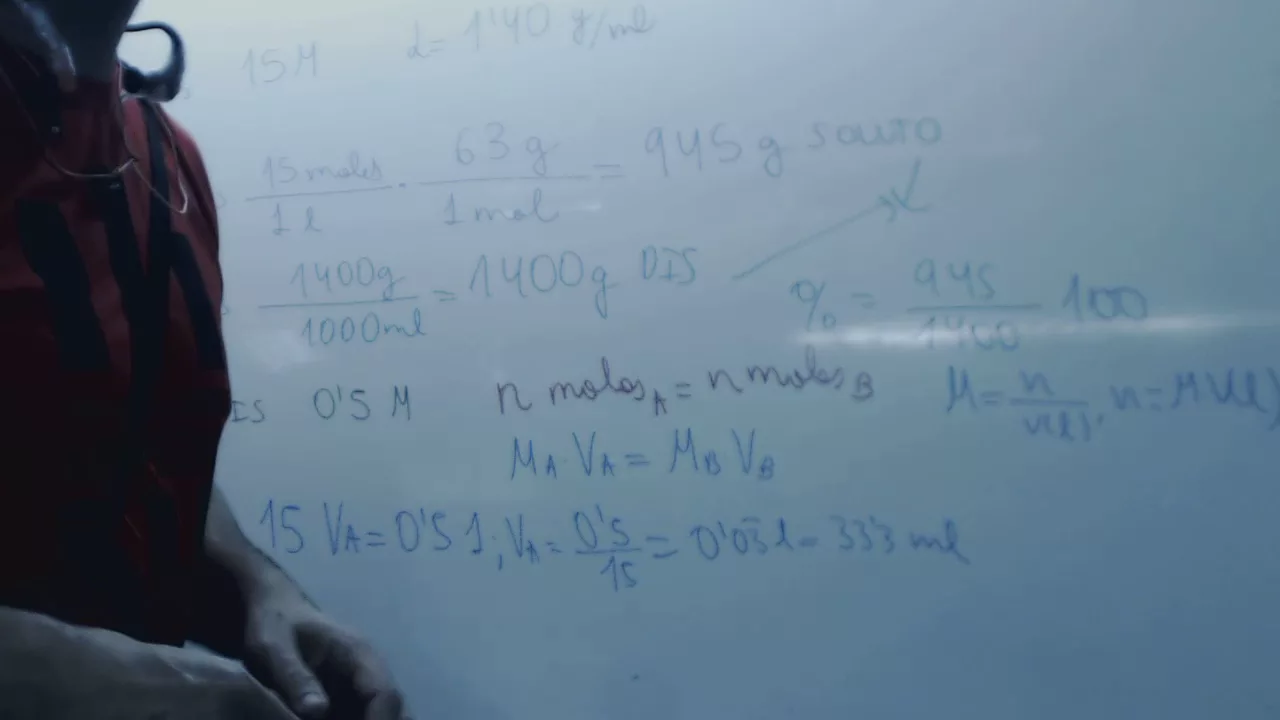 15M d= 1'40 g/ml
15 moles / 1 l · 63 g / 1 mol = 945 g SOLUTO
1400g / 1000ml = 1400g DIS
% = 945 / 1400 100
IS 0'5 M n moles A = n moles B M = n / V(l), n = M V(l)
MA · VA = MB VB
15 VA = 0'5 1; VA = 0'5 / 15 = 0'03 l = 33'3 ml